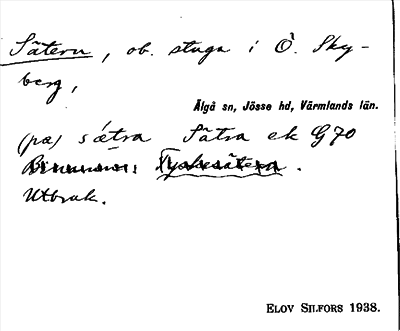 Sätern, ob. stuga i Ö. Sky-
berg,
Älgå sn, Jösse hd, Värmlands län.
(pa) sǽtra Sätra ek G70
Binamn: Tyskesätern.
Utbruk.
ELOV SILFORS 1938.